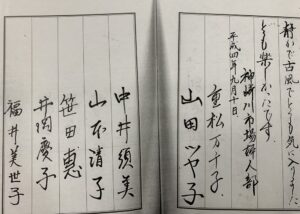 静かで古風でとても気に入りました
とても楽しかったです。
神崎川市場婦人部
平成四年九月十日
重松万千子
山田ツヤ子
中井須美
山本清子
笹田恵
井関慶子
福井美世子